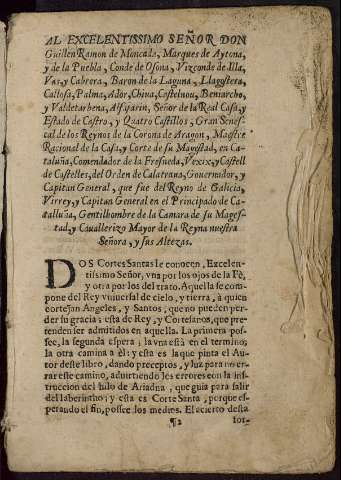 AL EXCELENTISSIMO SEÑOR DON
Guillen Ramon de Moncada, Marques de Aytona,
y de la Puebla, Conde de Osona, Vizconde de Illa,
Vas, y Cabrera, Baron de la Laguna, Llagostera,
Callosa, Palma, Ador, Chiua, Castelnou, Beniarcho,
y Valdetarbena, Alfajarin, Señor de la Real Casa, y
Estado de Castro, y Quatro Castillos, Gran Senes-
cal de los Reynos de la Corona de Aragon, Maestre
Racional de la Casa, y Corte de su Magestad, en Ca-
taluña, Comendador de la Fresneda, Vexix, y Castell
de Castelles, del Orden de Calatraua, Gouernador, y
Capitan General, que fue del Reyno de Galicia,
Virrey, y Capitan General en el Principado de Ca-
talluña, Gentilhombre de la Camara de su Mages-
tad, y Cauallerizo Mayor de la Reyna nuestra
Señora, y sus Altezas.
DOS Cortes Santas se conocen, Excelen-
tissimo Señor, vna por los ojos de la Fè,
y otra por los del trato. Aquella se com-
pone del Rey vniuersal de cielo, y tierra, à quien
cortejan Angeles, y Santos, que no pueden per-
der su gracia: esta de Rey, y Cortesanos, que pre-
tenden ser admitidos en aquella. La primera pos-
see, la segunda espera; la vna està en el termino,
la otra camina à èl: y esta es la que pinta el Au-
tor deste libro, dando preceptos, y luz para no er-
rar este camino, aduirtiendo los errores con la ins-
truccion del hilo de Ariadna, que guia para salir
del laberintho; y esta es Corte Santa, porque es-
perando el fin, possee los medios. El acierto desta
¶2